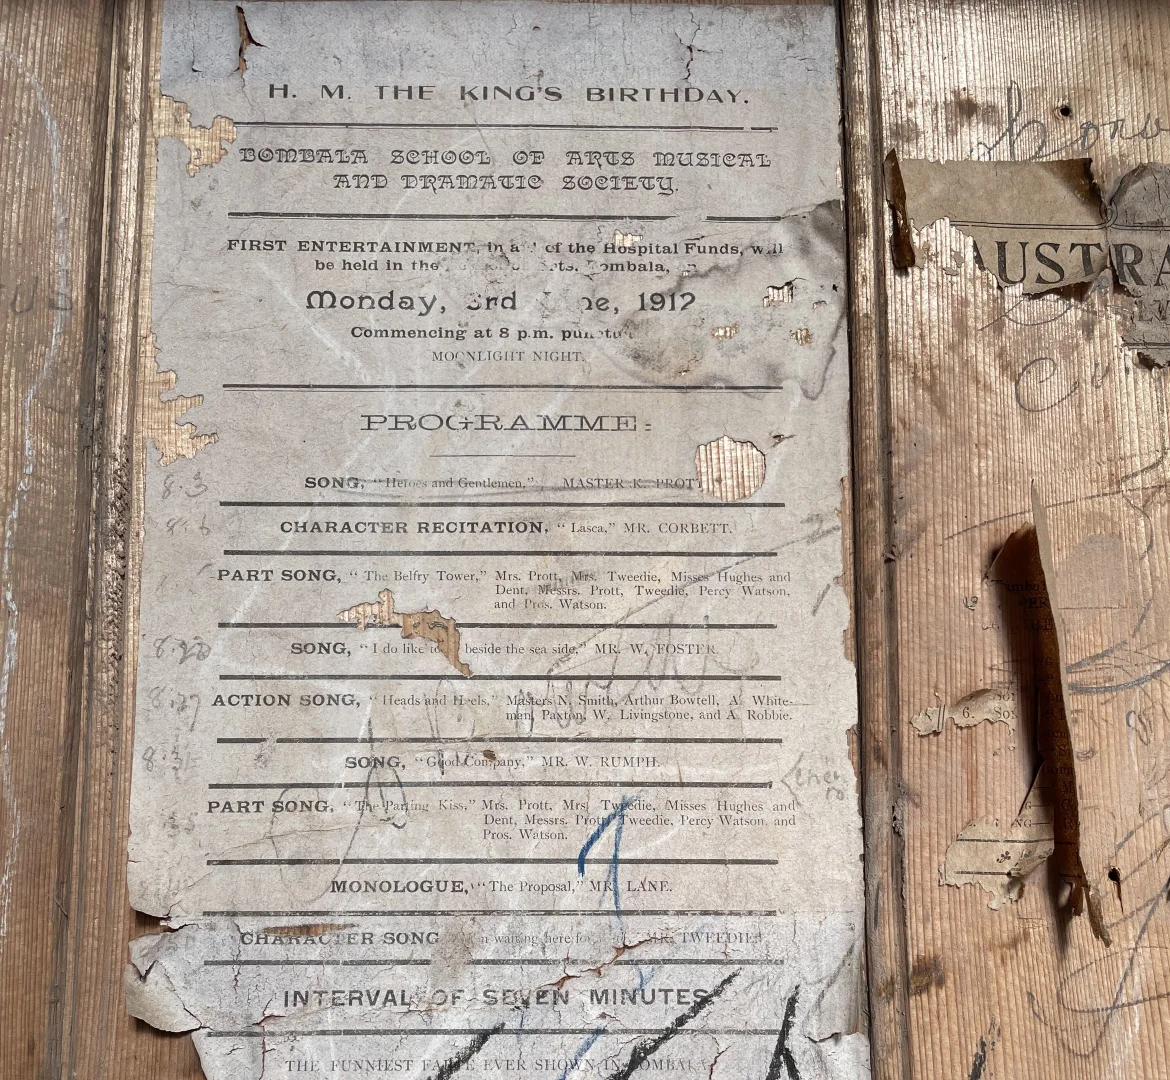 H. M. THE KING'S BIRTHDAY.
BOMBALA SCHOOL OF ARTS MUSICAL
AND DRAMATIC SOCIETY.
FIRST ENTERTAINMENT, in of the Hospital Funds, will
be held in the
Monday, 3rd 1912
Commencing at 8 p.m.
MOONLIGHT NIGHT.
PROGRAMME:
8.3 SONG, "Heroes and Gentlemen," MASTER K. PROTT
CHARACTER RECITATION, "Lasca," MR. CORBETT.
PART SONG, "The Belfry Tower," Mrs. Prott, Mrs. Tweedie, Misses Hughes and
Dent, Messrs. Prott, Tweedie, Percy Watson,
and Pros. Watson.
SONG, "I do like beside the sea side," MR. W. FOSTER.
8.27 ACTION SONG, "Heads and Heels," Masters N. Smith, Arthur Bowtell, A. White-
man, Paxton, W. Livingstone, and A. Robbie.
SONG, "Good Company," MR. W. RUMPH.
PART SONG, "The Parting Kiss," Mrs. Prott, Mrs. Tweedie, Misses Hughes and
Dent, Messrs. Prott, Tweedie, Percy Watson, and
Pros. Watson.
MONOLOGUE, "The Proposal," MR. LANE.
CHARACTER SONG waiting here MR. TWEEDIE
INTERVAL OF SEVEN MINUTES
THE FUNNIEST EVER SHOWN IN
AUSTRA